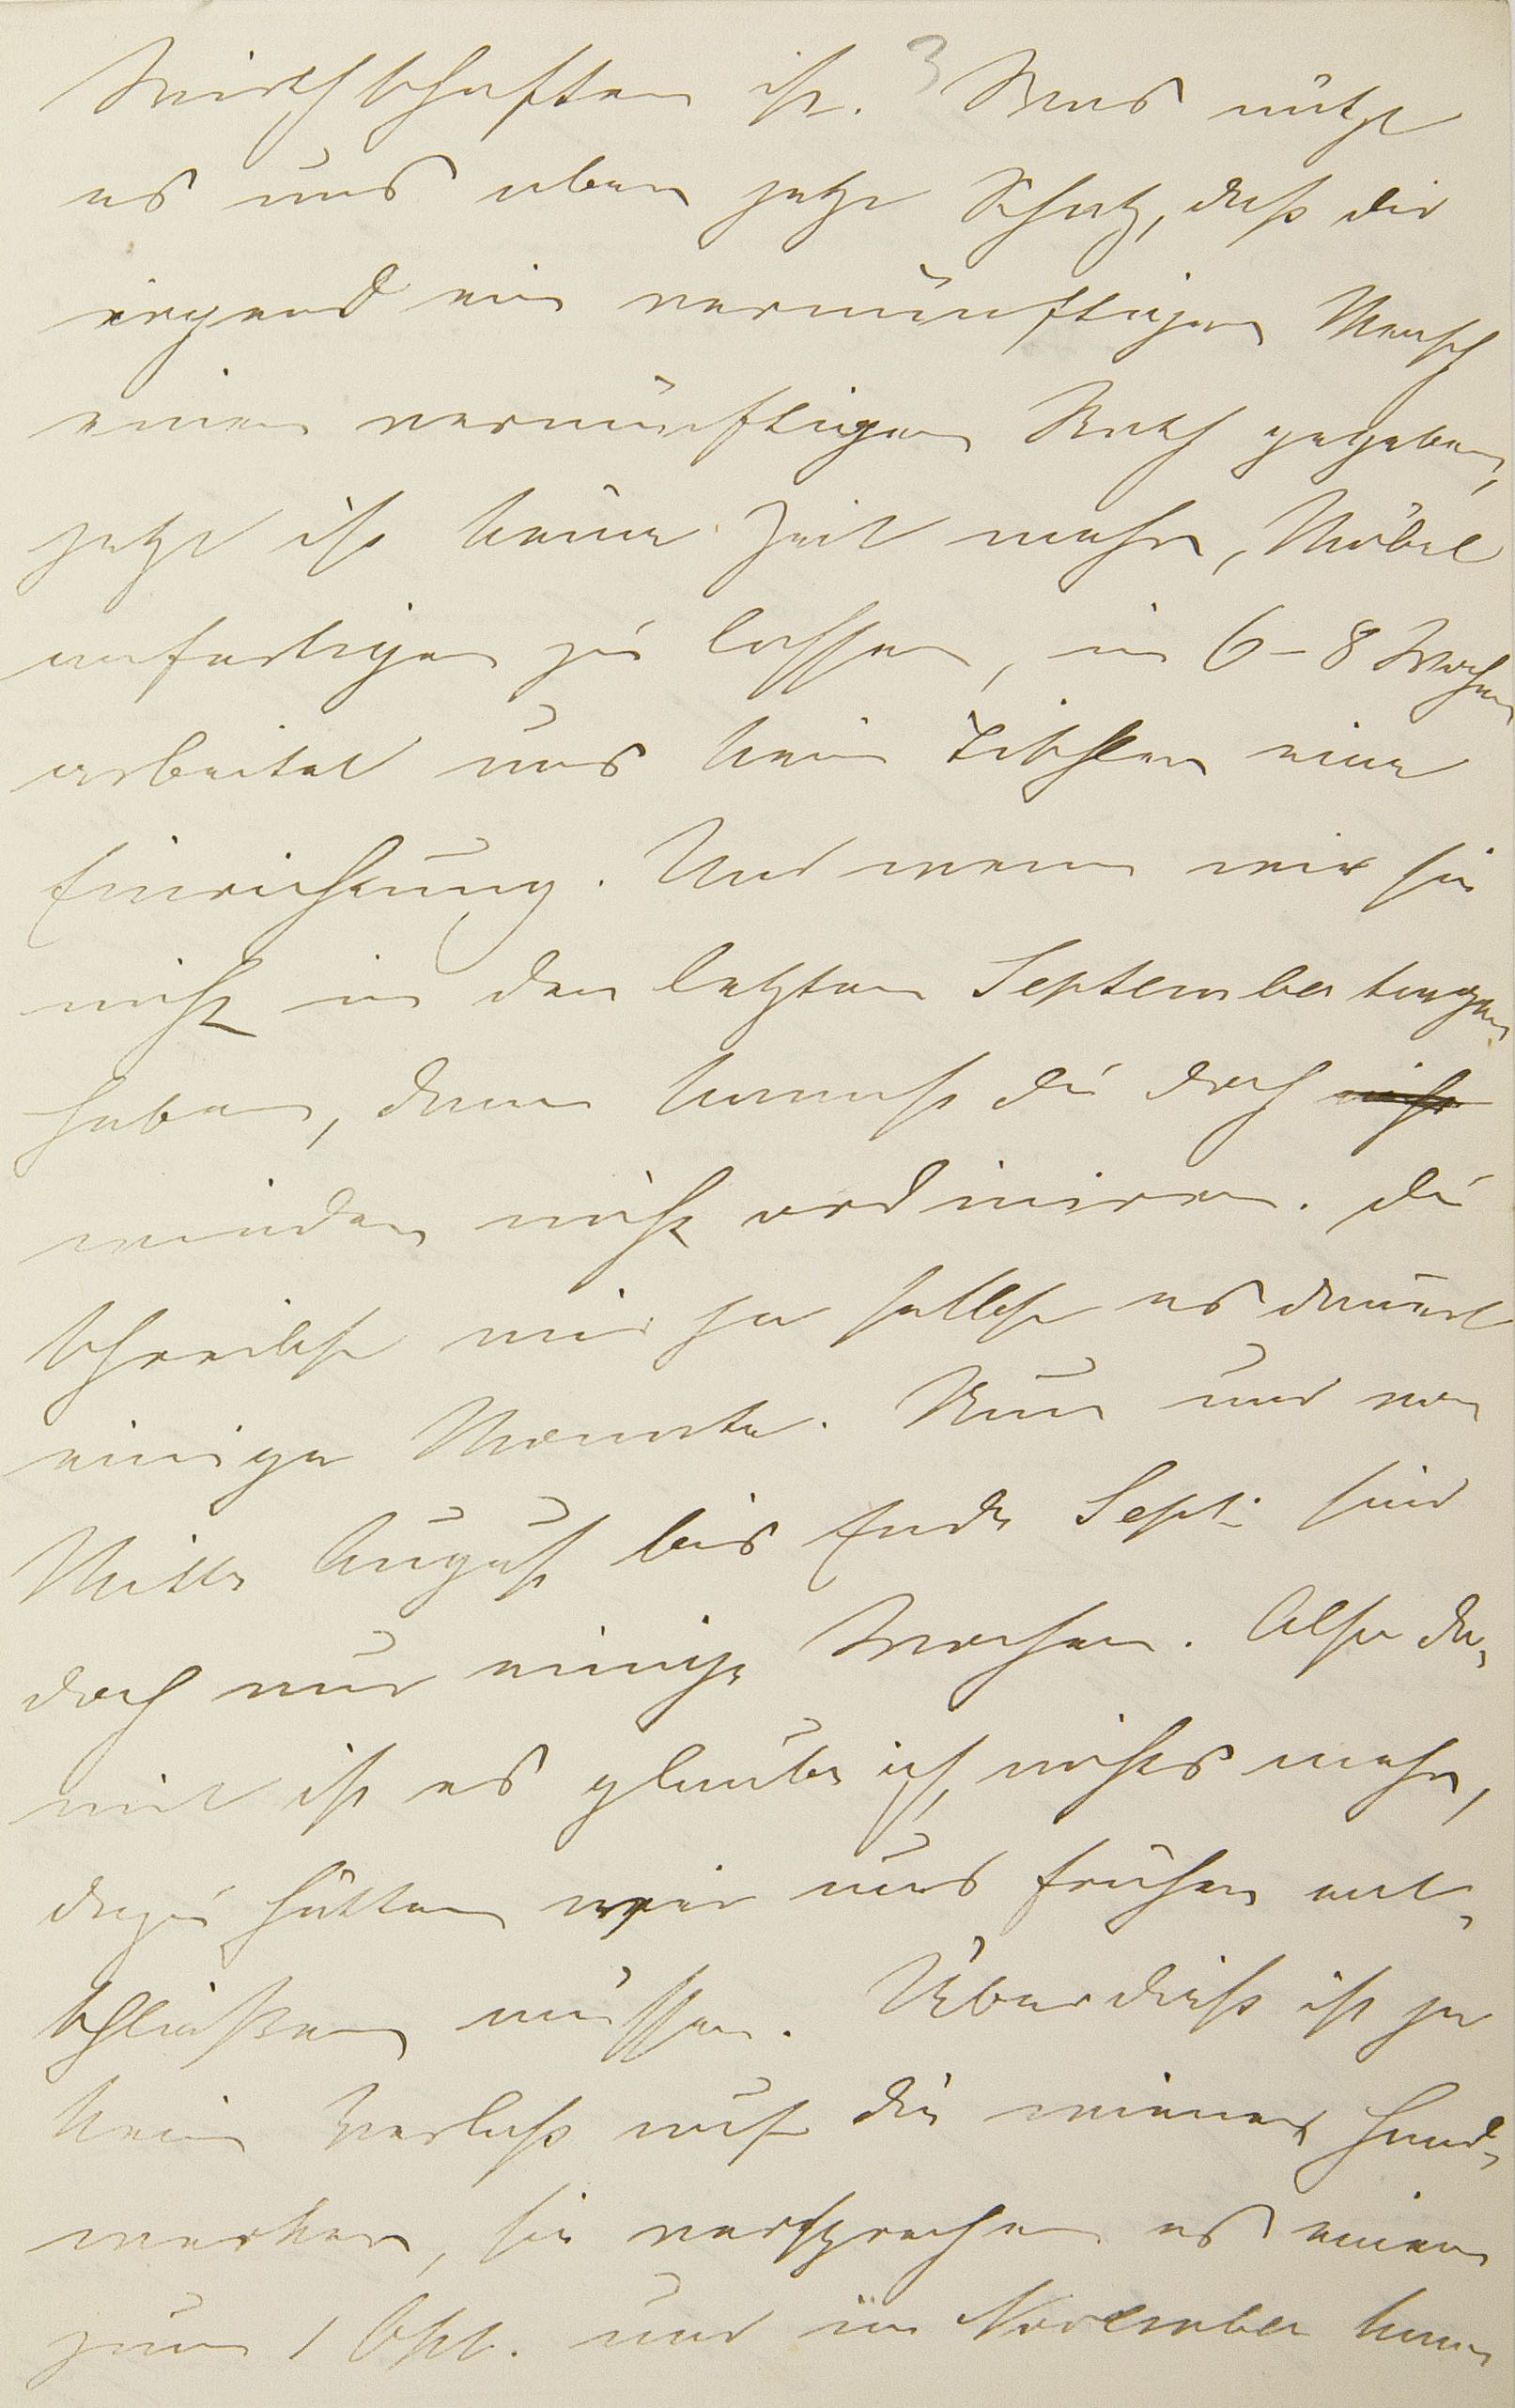 Wirthschaften ist. 3 Was nützt
es uns aber jetzt Schatz, daß dir
irgend ein vernünftiger Mensch
einen vernünftigen Rath gegeben,
jetzt ist keine Zeit mehr, Möbel
anfertigen zu lassen, in 6-8 Wochen
arbeitet uns kein Tischler eine
Einrichtung. Und wenn wir sie
nicht in den letzten Septembertagen
haben, dann kannst du doch nicht
wieder nicht ordiniren. Du
schreibst mir ja selbst es dauert
einige Monate. Nun und von
Mitte August bis Ende Sept. sind
doch nur einige Wochen. Also da-
mit ist es glaube ich, nichts mehr,
dazu hätten wir uns früher ent-
schließen müssen. Überdieß ist ja
kein Verlaß auf die wiener Hand-
werker, sie versprechen es einem
zum 1 Okt. und im November kann